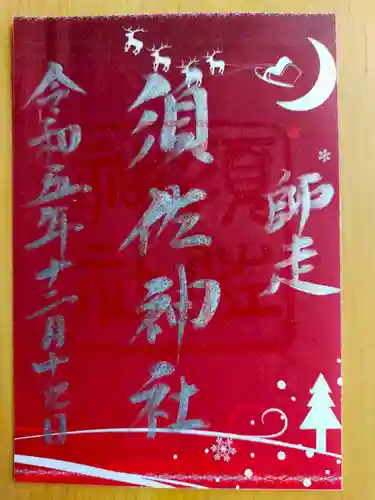 師走
須佐神社
令和五年十二月十七日
須佐
神社